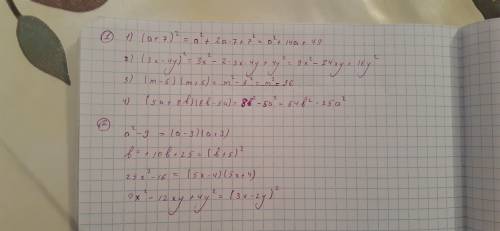 ① 1) (a+7)² = a² + 2a·7 + 7² = a² + 14a + 49
2) (3x-4y)² = 3x² - 2·3x·4y + 4y² = 9x² - 24xy + 16y²
3) (m-6)(m+6) = m² - 6² = m² - 36
4) (5a+8b)(8b-5a) = 8b² - 5a² = 64b² - 25a²
② a² - 9 = (a-3)(a+3)
b² + 10b + 25 = (b+5)²
25x² - 16 = (5x-4)(5x+4)
9x² - 12xy + 4y² = (3x-2y)²